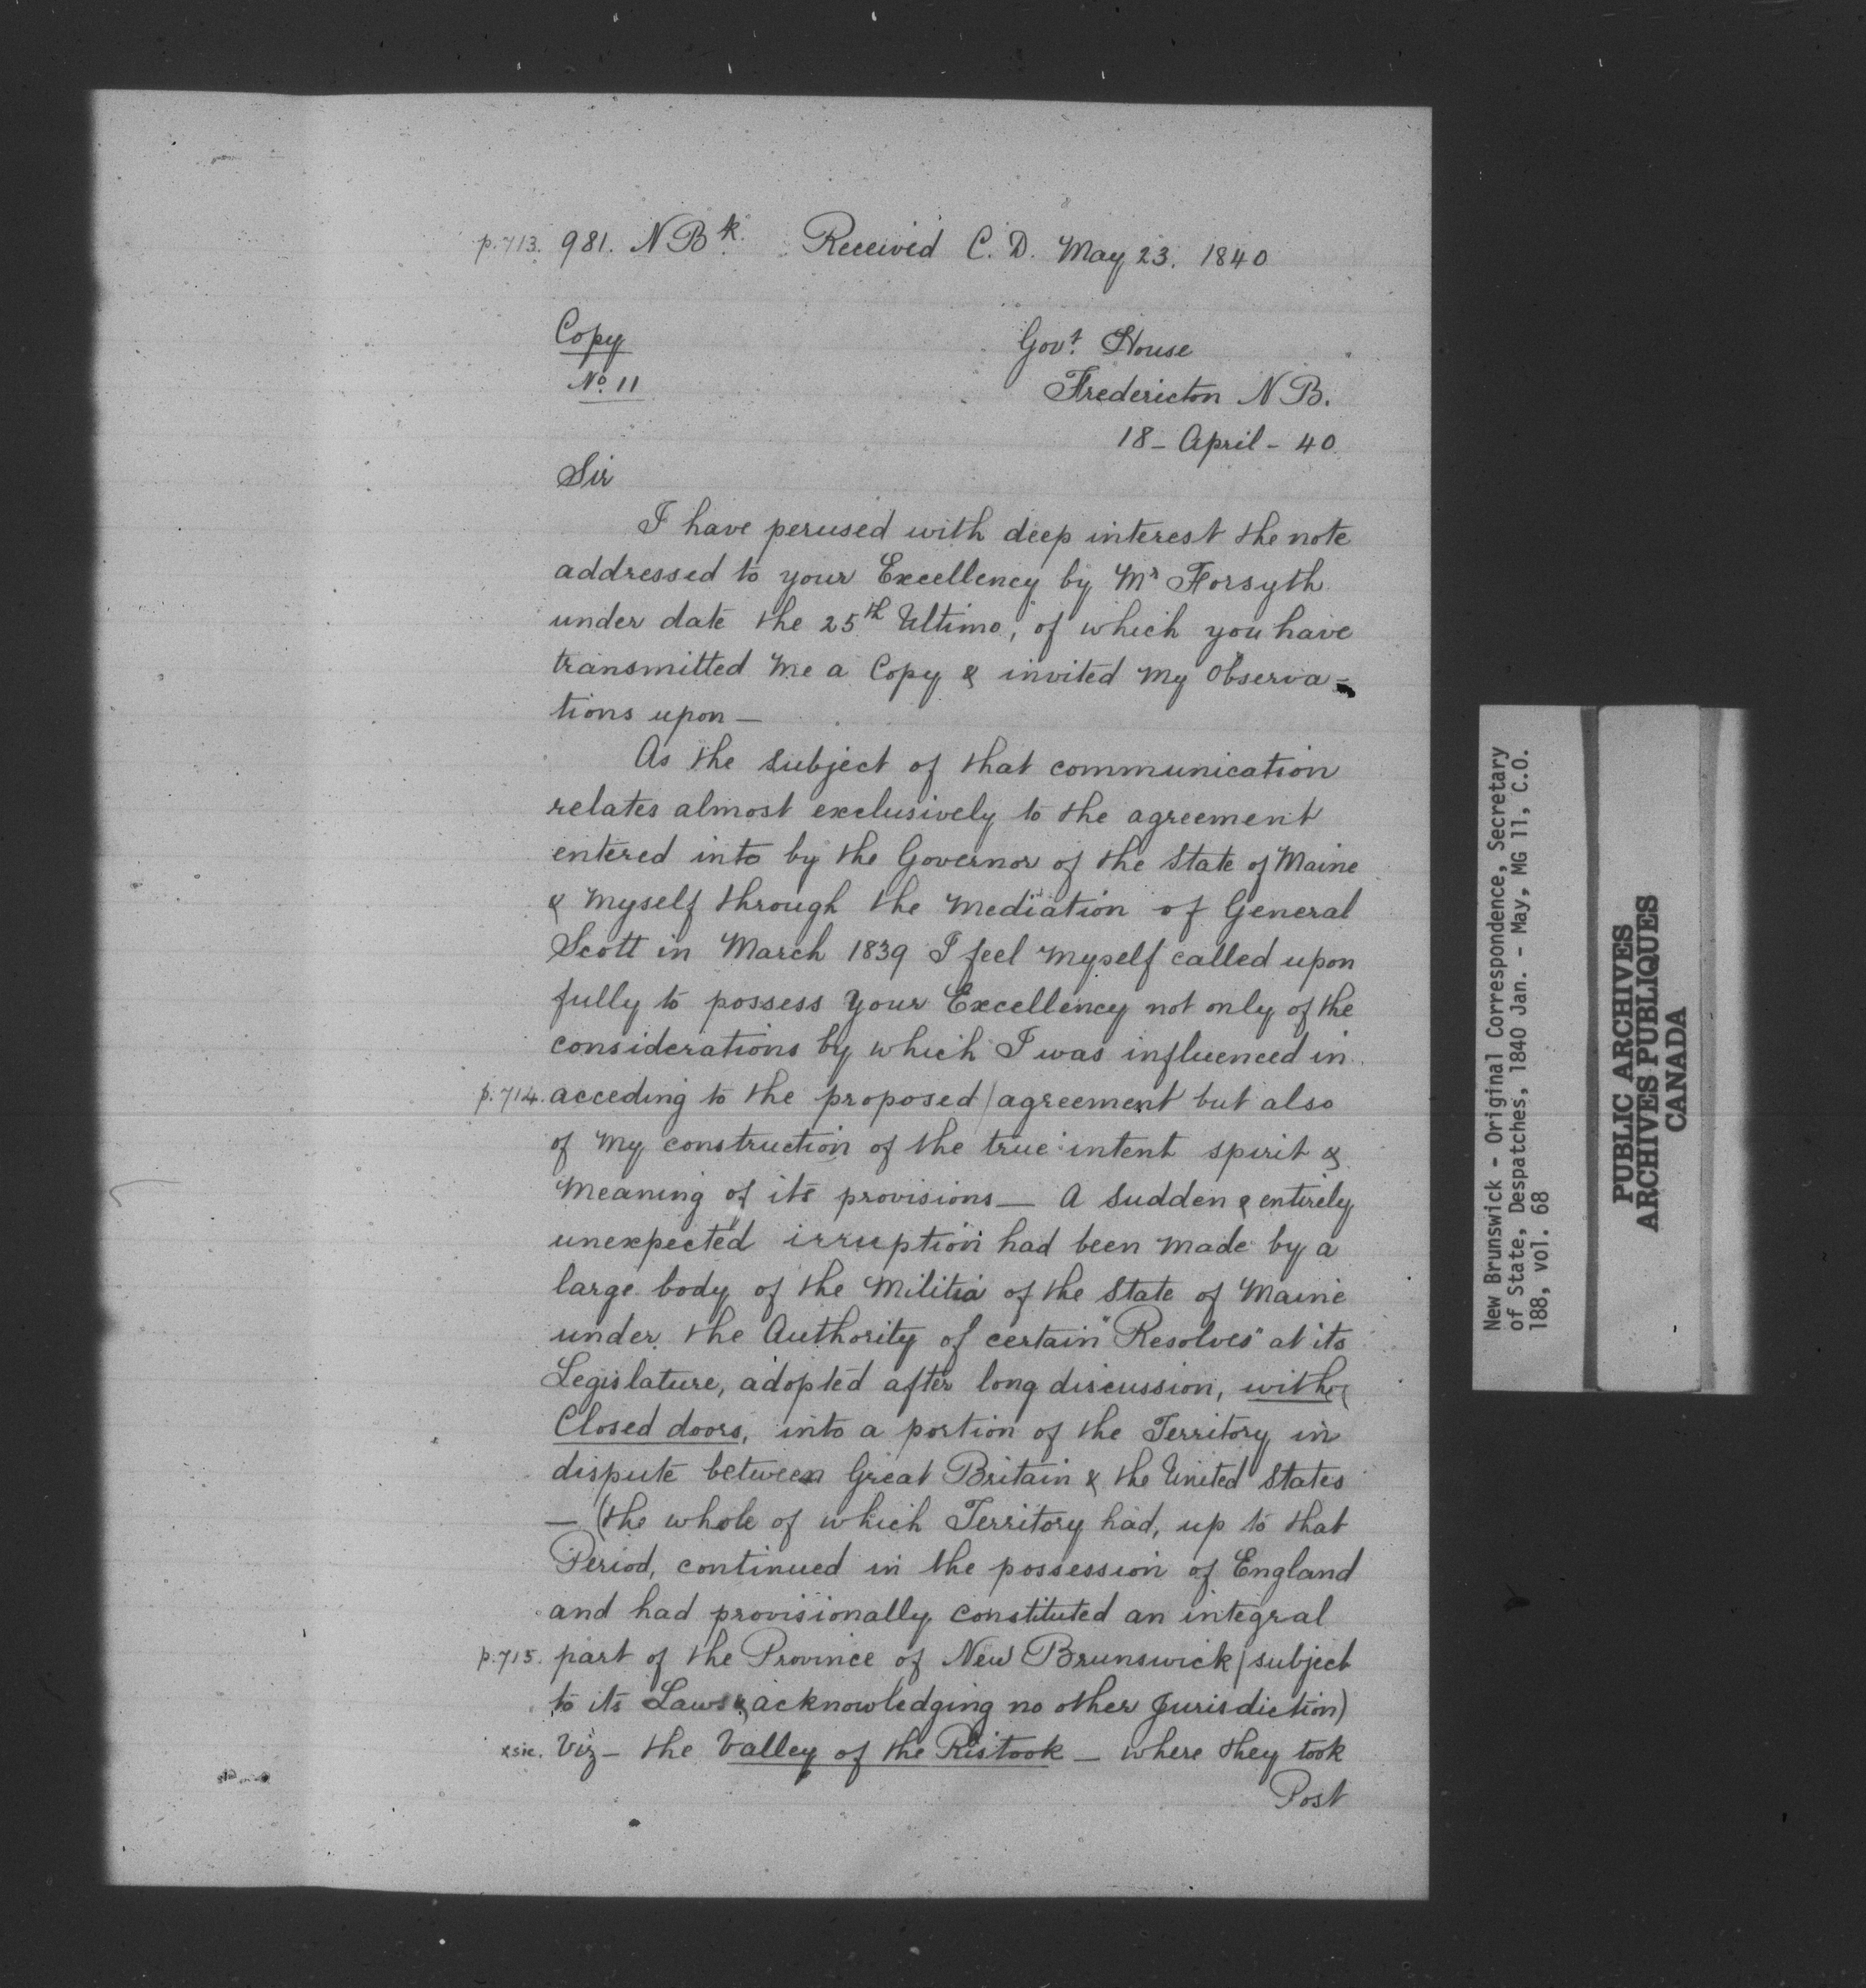 p.713. 981. N Bk. Received C. D. May 23. 1840
Copy
No. 11
Govt. House
Fredericton N B.
18 - April - 40
Sir
I have perused with deep interest the note
addressed to your Excellency by Mr Forsyth
under date the 25th Ultimo, of which you have
transmitted me a Copy & invited my Observa-
tions upon —
As the subject of that communication
relates almost exclusively to the agreement
entered into by the Governor of the State of Maine
& Myself through the Mediation of General
Scott in March 1839 I feel Myself called upon
fully to possess Your Excellency not only of the
considerations by which I was influenced in
p.714. acceding to the proposed / agreement but also
of My construction of the true intent spirit &
Meaning of its provisions — A sudden & entirely
unexpected "irruption" had been Made by a
large body of the Militia of the State of Maine
under the Authority of certain "Resolves" at its
Legislature, adopted after long discussion, with
Closed doors, into a portion of the Territory in
dispute between Great Britain & the United States
— (the whole of which Territory had, up to that
Period, continued in the possession of England
and had provisionally constituted an integral
p.715. part of the Province of New Brunswick / subject
to its Laws & acknowledging no other Jurisdiction)
xsic. Viz - the Valley of the Ristook — where they took
Post
New Brunswick - Original Correspondence, Secretary
of State, Despatches, 1840 Jan. - May, MG 11, C.O.
188, vol. 68
PUBLIC ARCHIVES
ARCHIVES PUBLIQUES
CANADA